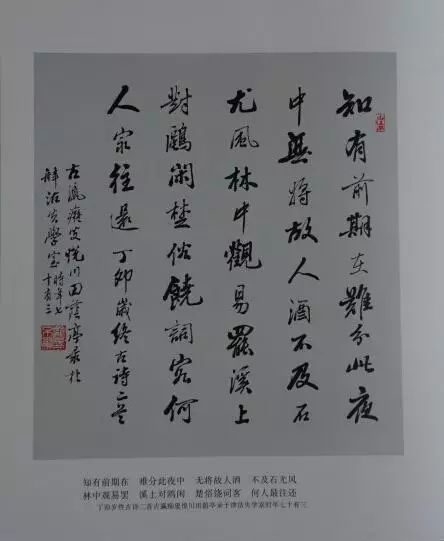 知有前期在難分此夜
中無將故人酒不及石
尤風林中觀易罷溪上
對鷗閑楚俗饒詞客何
人最往還 丁卯歲終古詩二首
古瀛癡叟悦川田蔭亭录於
津沽失學室時年七
十有三
知有前期在 难分此夜中 无将故人酒 不及石尤风
林中观易罢 溪上对鸥闲 楚俗饶词客 何人最往还
丁卯岁终古诗二首古瀛痴叟悦川田荫亭录于津沽失学室时年七十有三